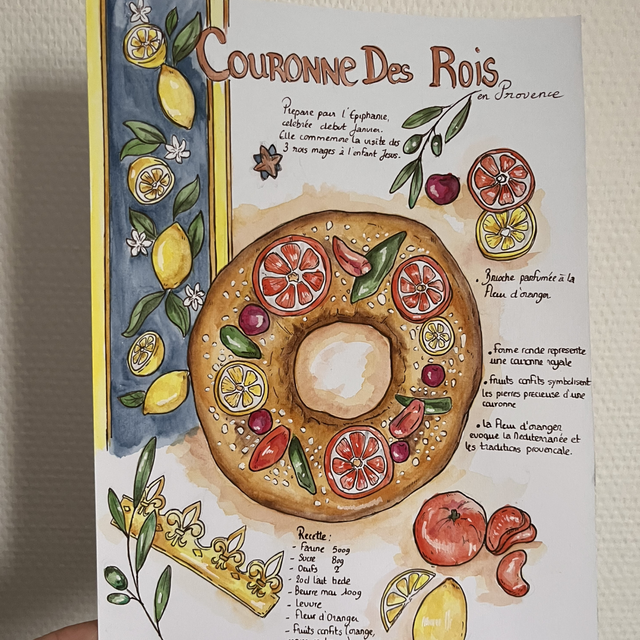 COURONNE DES ROIS
en Provence
Prepare pour l'Epiphanie,
celebrée debut Janvier.
Elle commemore la visite des
3 rois mages à l'enfant Jesus.
• Brioche parfumée à la
fleur d'oranger
• Forme ronde represente
une couronne royale
• Fruits confits symbolisent
les pierres precieuse d'une
couronne
• la fleur d'oranger
evoque la Mediterranée et
les traditions provencale.
Recette :
- Farine 500g
- Sucre 80g
- Oeufs 2
- 20cl lait tiede
- Beurre mou 100g
- Levure
- Fleur d'Oranger
- Fruits confits (orange,